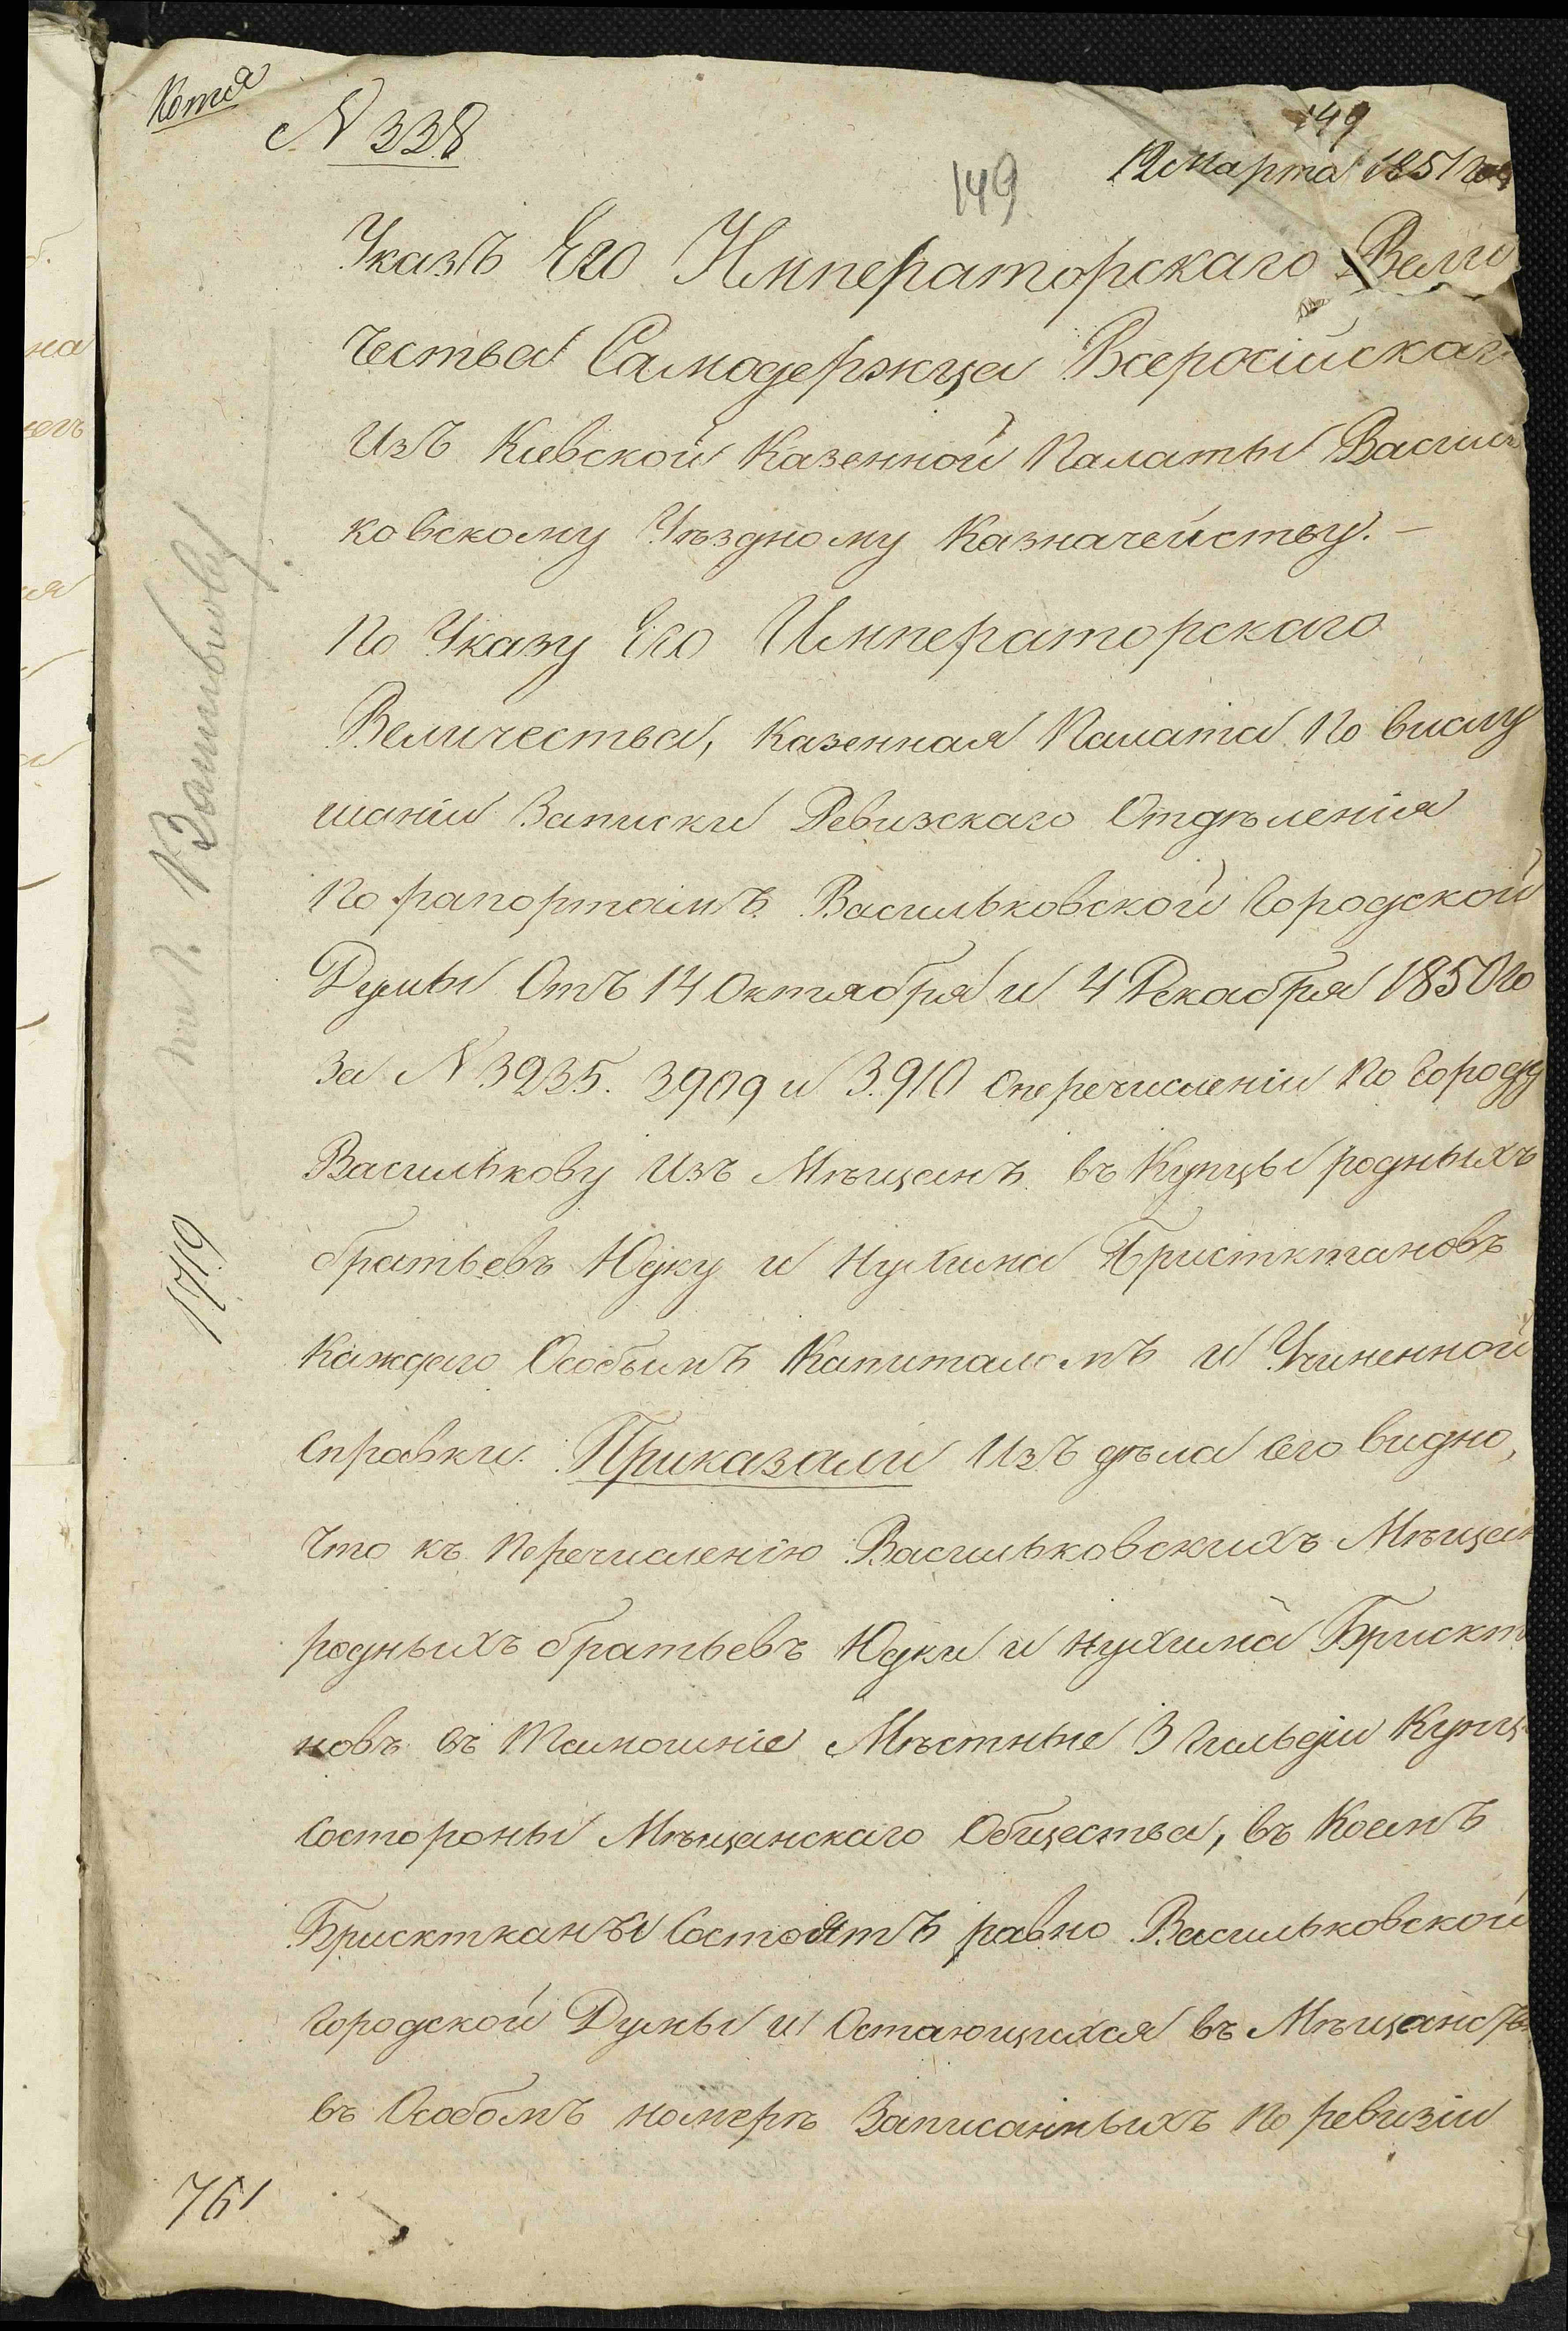 Копія
N 338
149
149
12 Марта 1851 го
Указъ Его Императорскаго Вели
чества Самодержца Всеросійскаг
Изъ Кіевской Казенной Палаты Василь
ковскому Уѣздному Казначейству. —
По Указу Его Императорскаго
Величества, Казенная Палата По выслу
шаніи Записки Ревизскаго Отдѣленія
По рапортамъ Васильковской Городской
Думы Отъ 14 Октября и 4 Декабря 1850 го
За N 3235. 3909 и 3.910 Оперечисленіи По Городу
Василькову Изъ Мѣщанъ въ Купцы родныхъ
братьевъ Юдку и Нухима
Каждаго Особымъ Капиталомъ и Учиненной
Справки. Приказали Изъ дѣла Сего видно,
Что къ Перечисленію Васильковскихъ Мѣщан
родныхъ братьевъ Юдки и Нухима Брискт
новъ въ Тамошніе Мѣстные 3 Гильдіи Купц
Состороны Мѣщанскаго Общества, въ Коемъ
Брисктканы Состоятъ равно Васильковской
Городской Думы и Остающихся въ Мѣщанств
въ Особомъ номерѣ Записанныхъ По ревизіи
1719
761